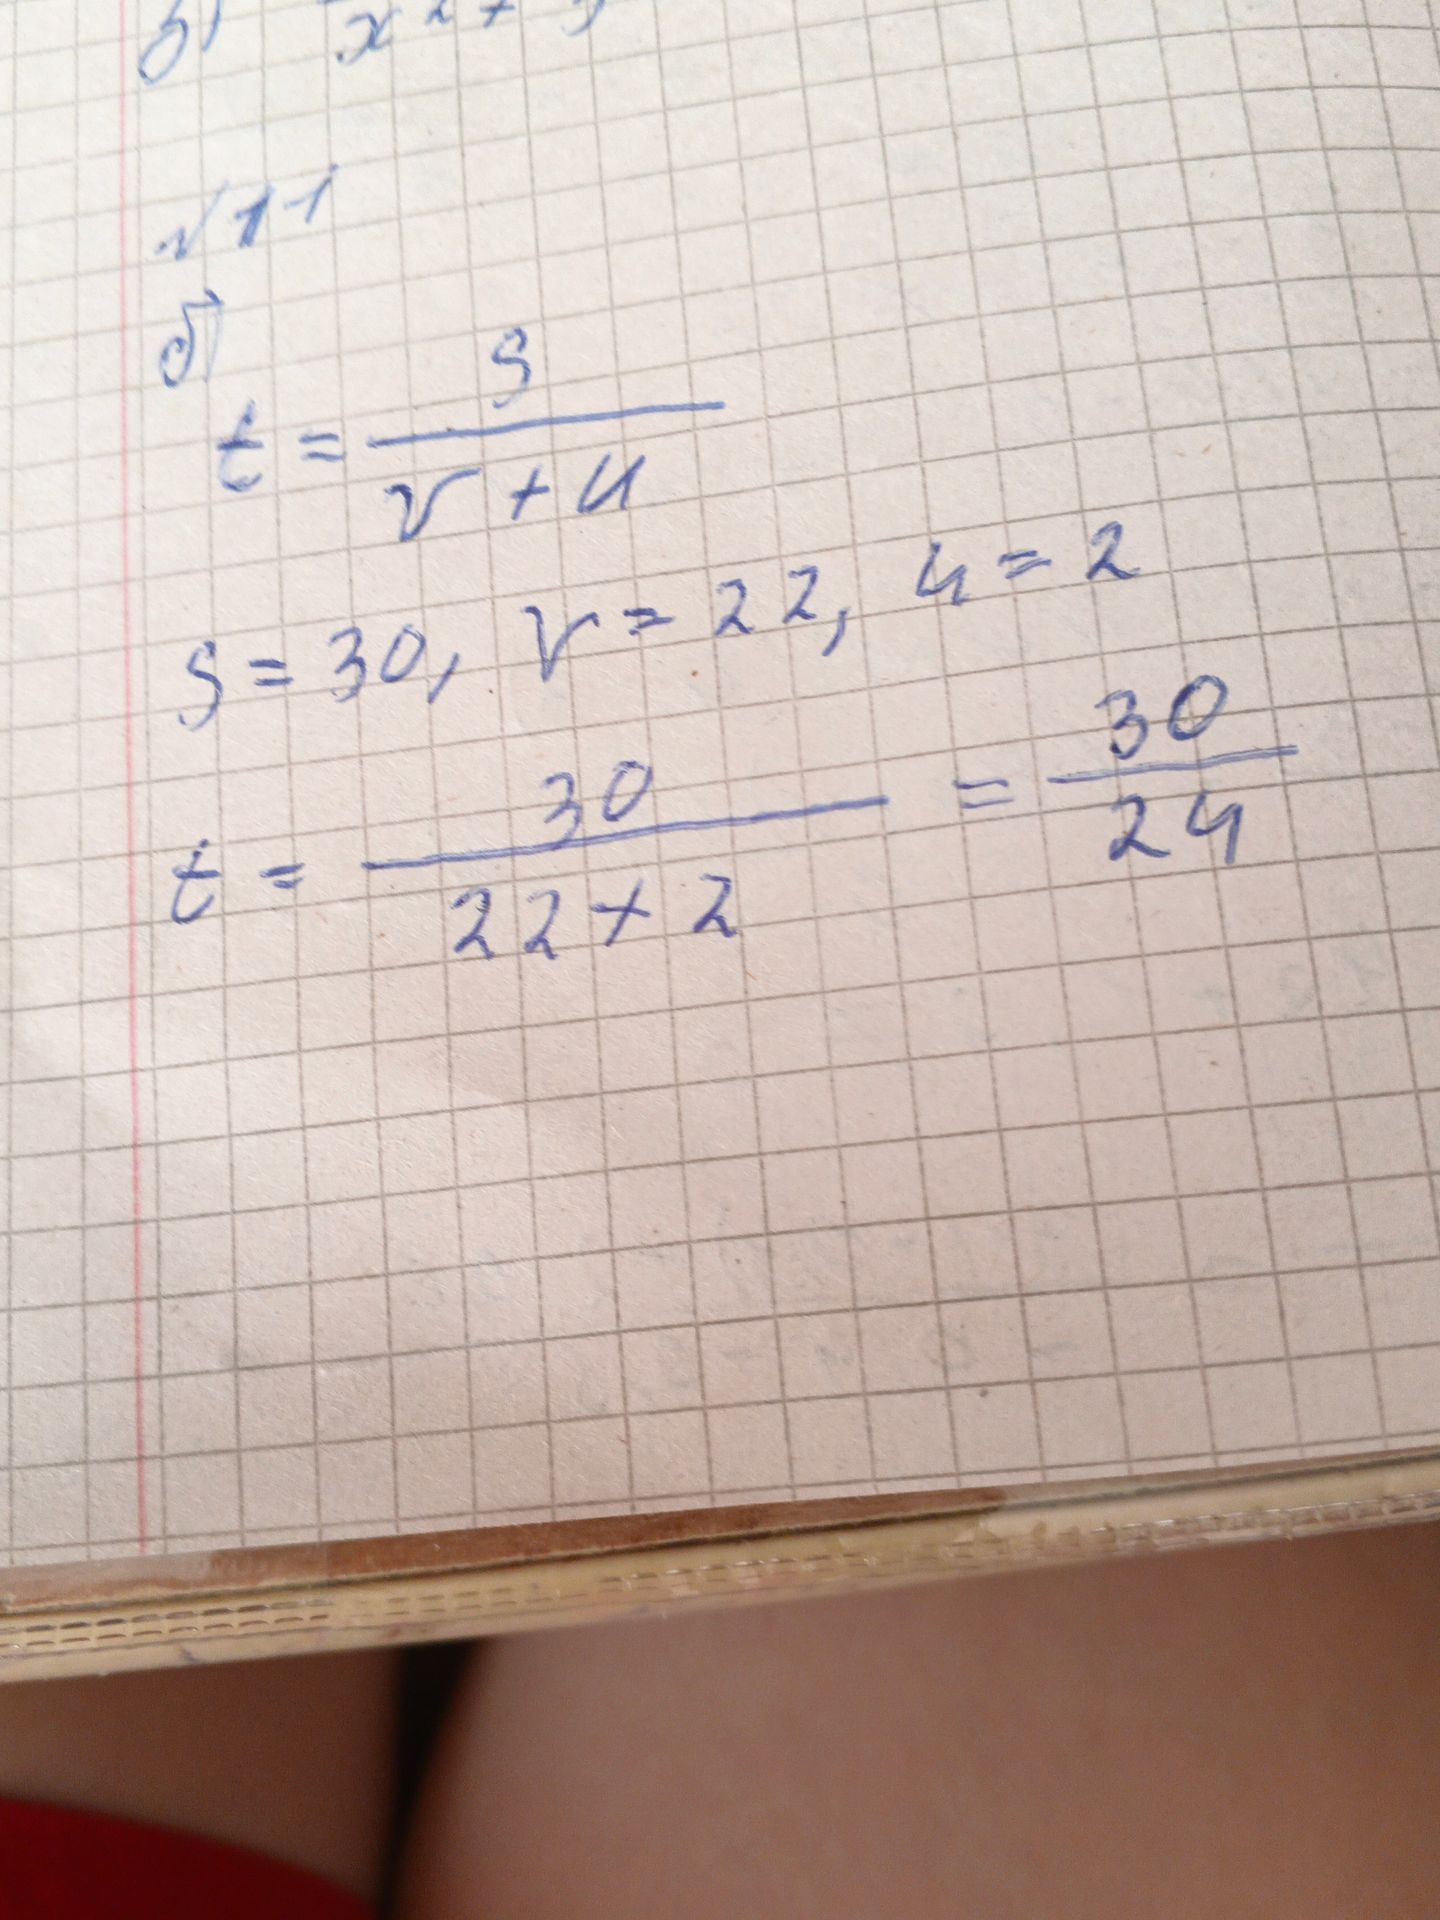 √11
б)
t = s / (v + u)
s = 30, v = 22, u = 2
t = 30 / (22 + 2) = 30 / 24